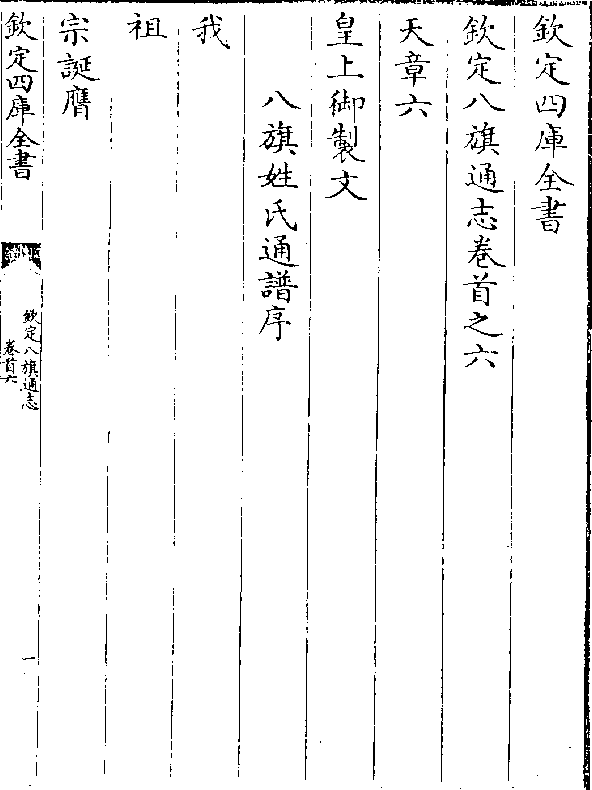 欽定四庫全書
欽定八旗通志卷首之六
天章六
皇上御製文
八旗姓氏通譜序
我
祖
宗誕膺
欽定四庫全書
欽定八旗通志
卷首六
一